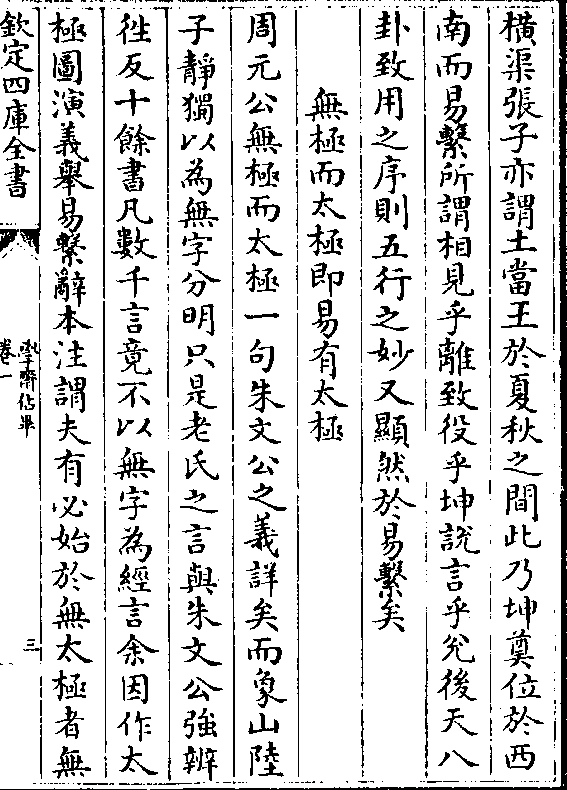 橫渠張子亦謂土當王於夏秋之間此乃坤奠位於西
南而易繫所謂相見乎離致役乎坤說言乎兊後天八
卦致用之序則五行之妙又顯然於易繫矣
無極而太極即易有太極
周元公無極而太極一句朱文公之義詳矣而象山陸
子靜獨以為無字分明只是老氏之言與朱文公強辨
徃反十餘書凡數千言竟不以無字為經言余因作太
極圖演義舉易繫辭本注謂夫有必始於無太極者無
欽定四庫全書
學齋佔畢
卷一
三